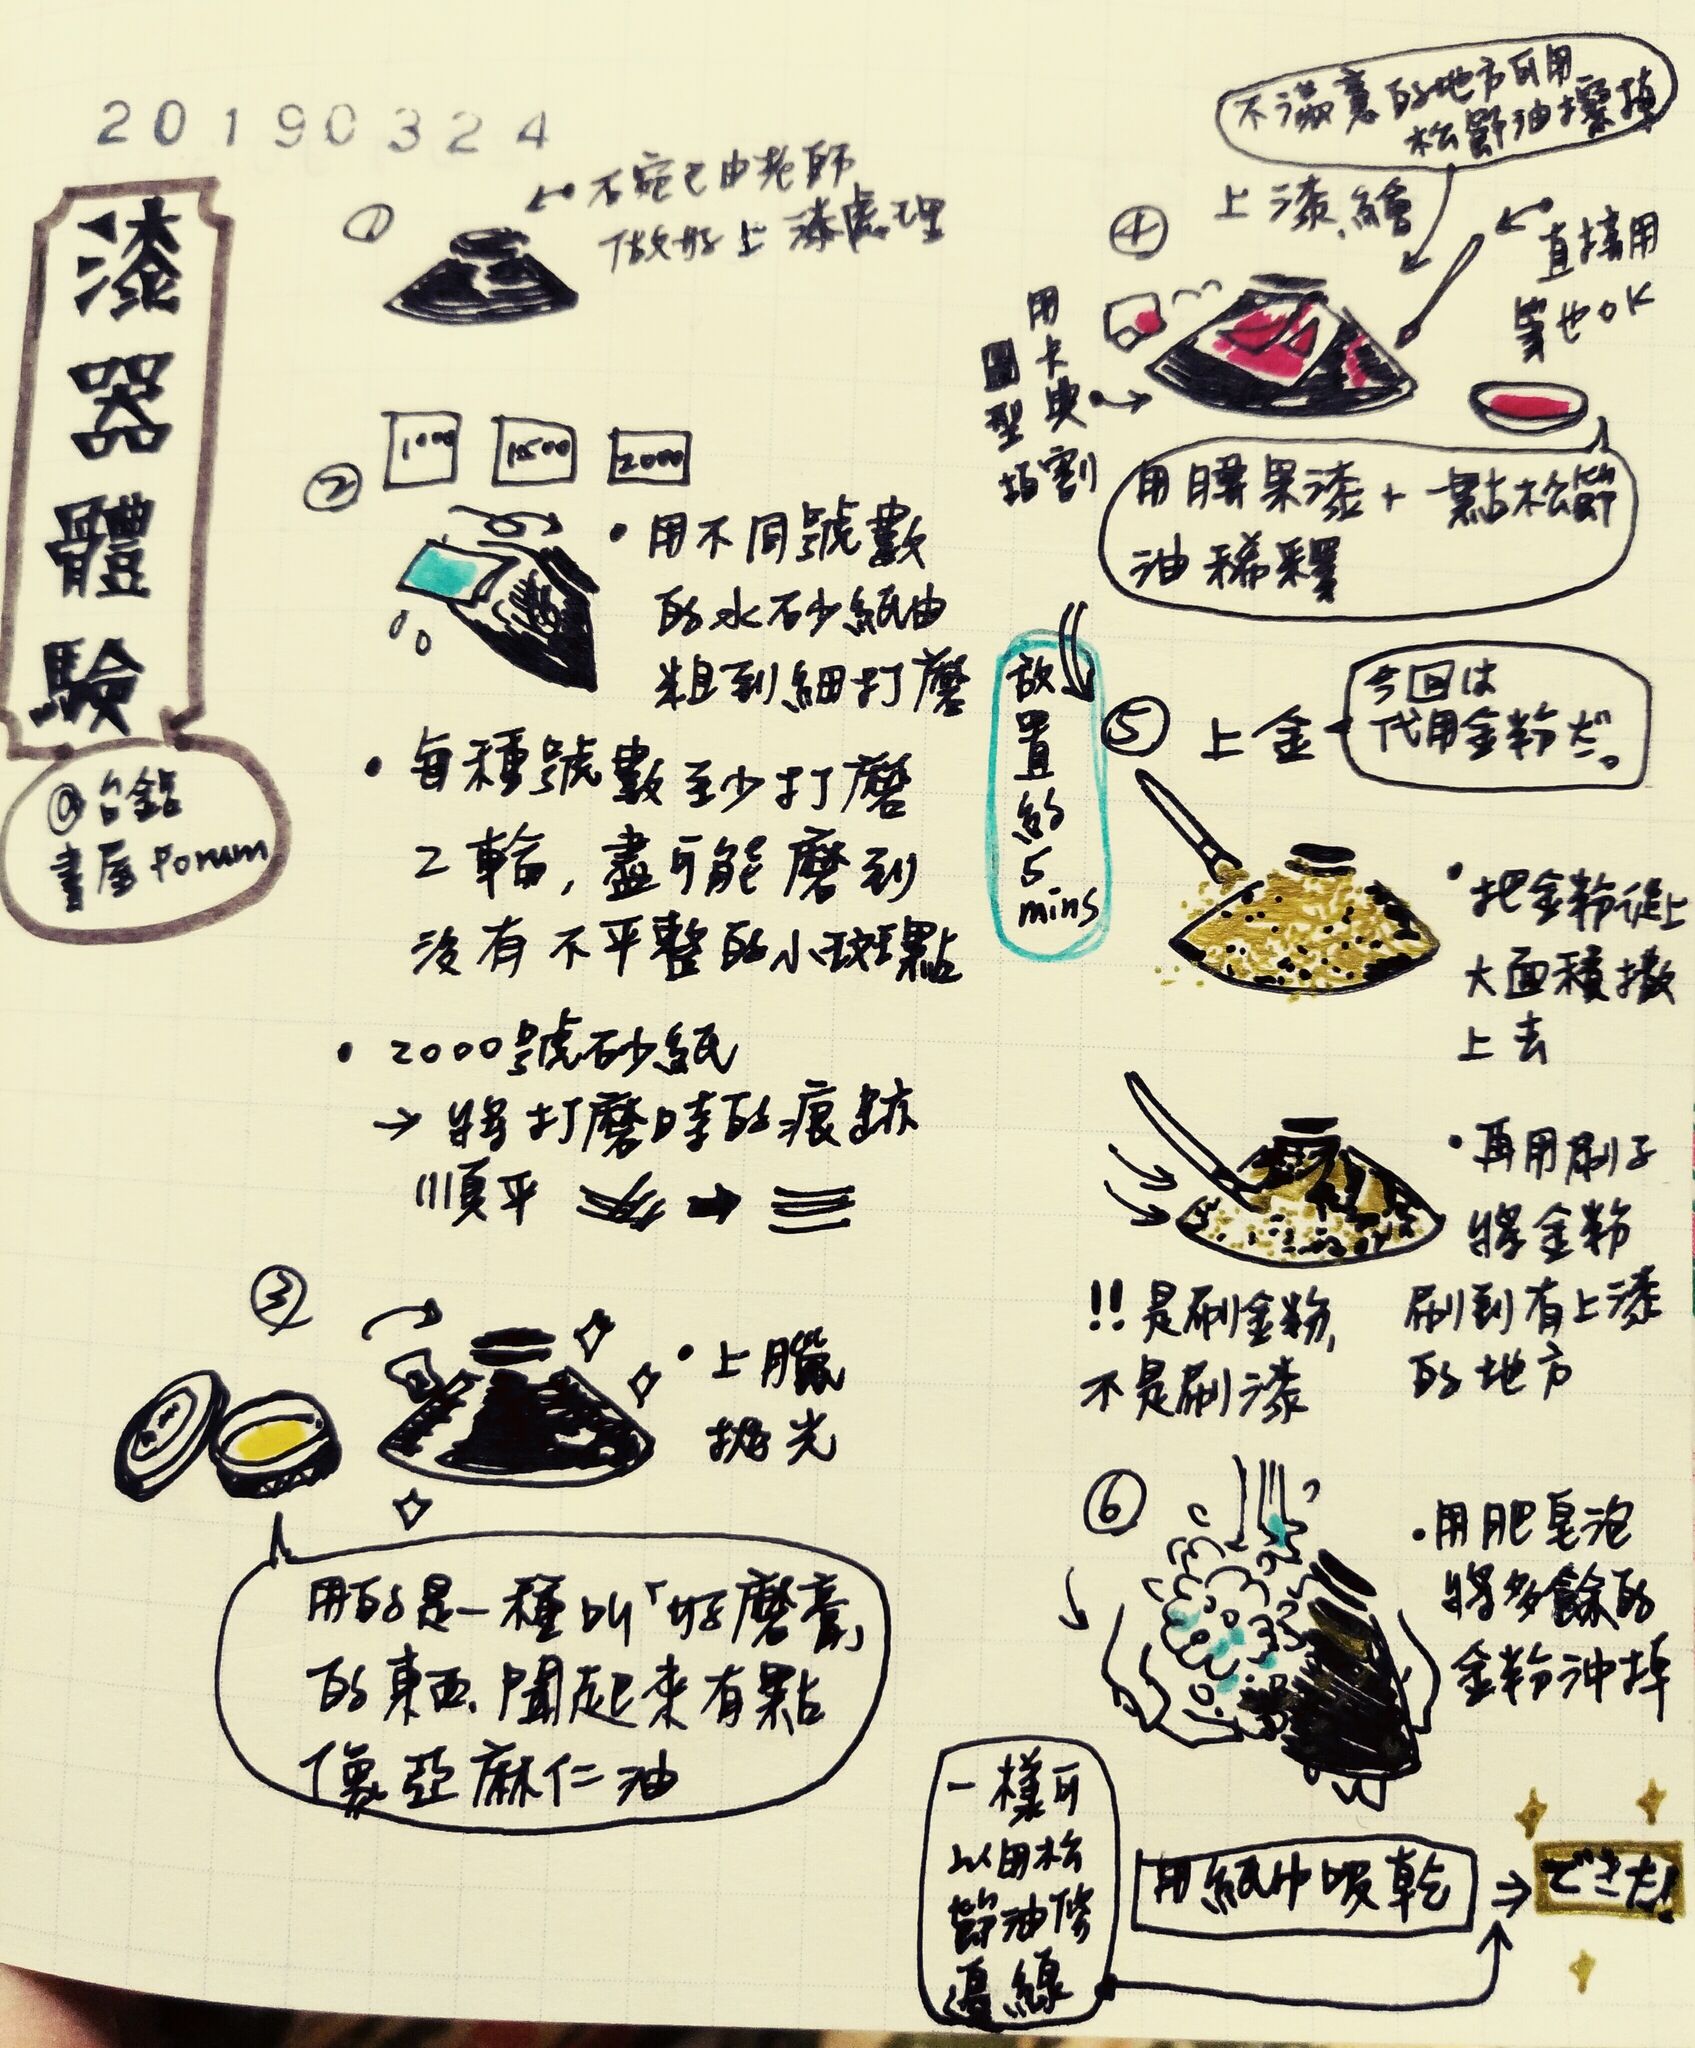 20190324
漆器體驗
@台鋁
書屋 Forum
①
木碗已由老師
做好上漆處理
②
1000
1500
2000
• 用不同號數
的水砂紙由
粗到細打磨
• 每種號數至少打磨
2輪,盡可能磨到
沒有不平整的小斑點
• 2000號砂紙
→ 將打磨時的痕跡
順平
③
• 上臘
拋光
用的是一種叫「好磨膏」
的東西,聞起來有點
像亞麻仁油
④
上漆、繪
不滿意的地方可用
松節油擦掉
直接用
筆也OK
用卡典
型切割
用腰果漆 + 一點松節
油稀釋
放置約5mins
⑤ 上金
今回は
代用金粉だ。
• 把金粉從上
大面積撒
上去
• 再用刷子
將金粉
刷到有上漆
的地方
!!是刷金粉,
不是刷漆
⑥
• 用肥皂泡
將多餘的
金粉沖掉
一樣可
以用松
節油修
邊線
用紙巾吸乾
→
できた!